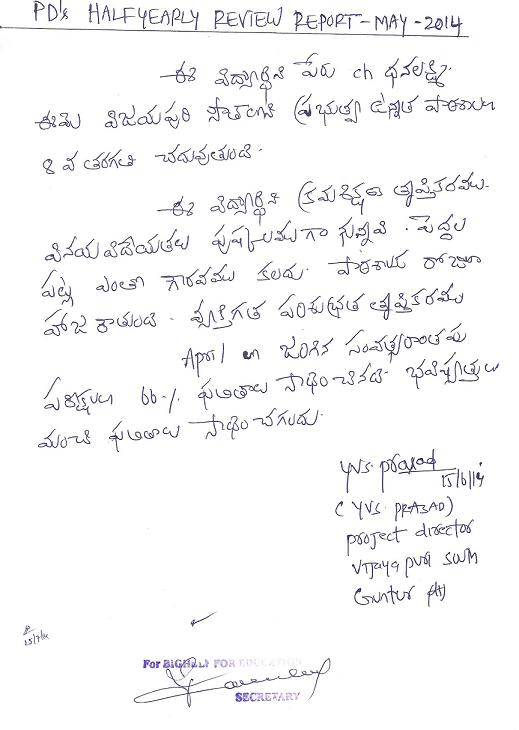 PD's HALFYEARLY REVIEW REPORT - MAY - 2014
ఈ విద్యార్థిని పేరు ch ధనలక్ష్మి.
ఈమె విజయపురి సౌత్ లోని ప్రభుత్వ ఉన్నత పాఠశాలలో
8 వ తరగతి చదువుతుంది.
ఈ విద్యార్థిని క్రమశిక్షణ తృప్తికరము.
వినయ విదేయతలు పుష్కలముగా వున్నవి. పెద్దల
పట్ల ఎంతో గౌరవము కలదు. పాఠశాలకు రోజూ
హాజరౌతుంది. వ్యక్తిగత పరిశుభ్రత తృప్తికరము
April లో జరిగిన సంవత్సరాంతపు
పరీక్షలలో 66% ఫలితాలు సాధించినది. భవిష్యత్తులో
మంచి ఫలితాలు సాధించగలదు.
YVS. prasad
15/6/14
(YVS. PRASAD)
project director
Vijaya puri south
Guntur (dt)
For BIGHELP FOR EDUCATION
SECRETARY